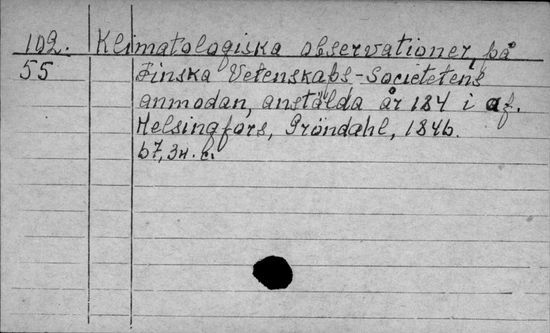 102. Klimatologiska observationer, på
55 Finska Vetenskabs-Societetens
anmodan, anställda år 184 i af.
Helsingfors, Gröndahl, 1846.